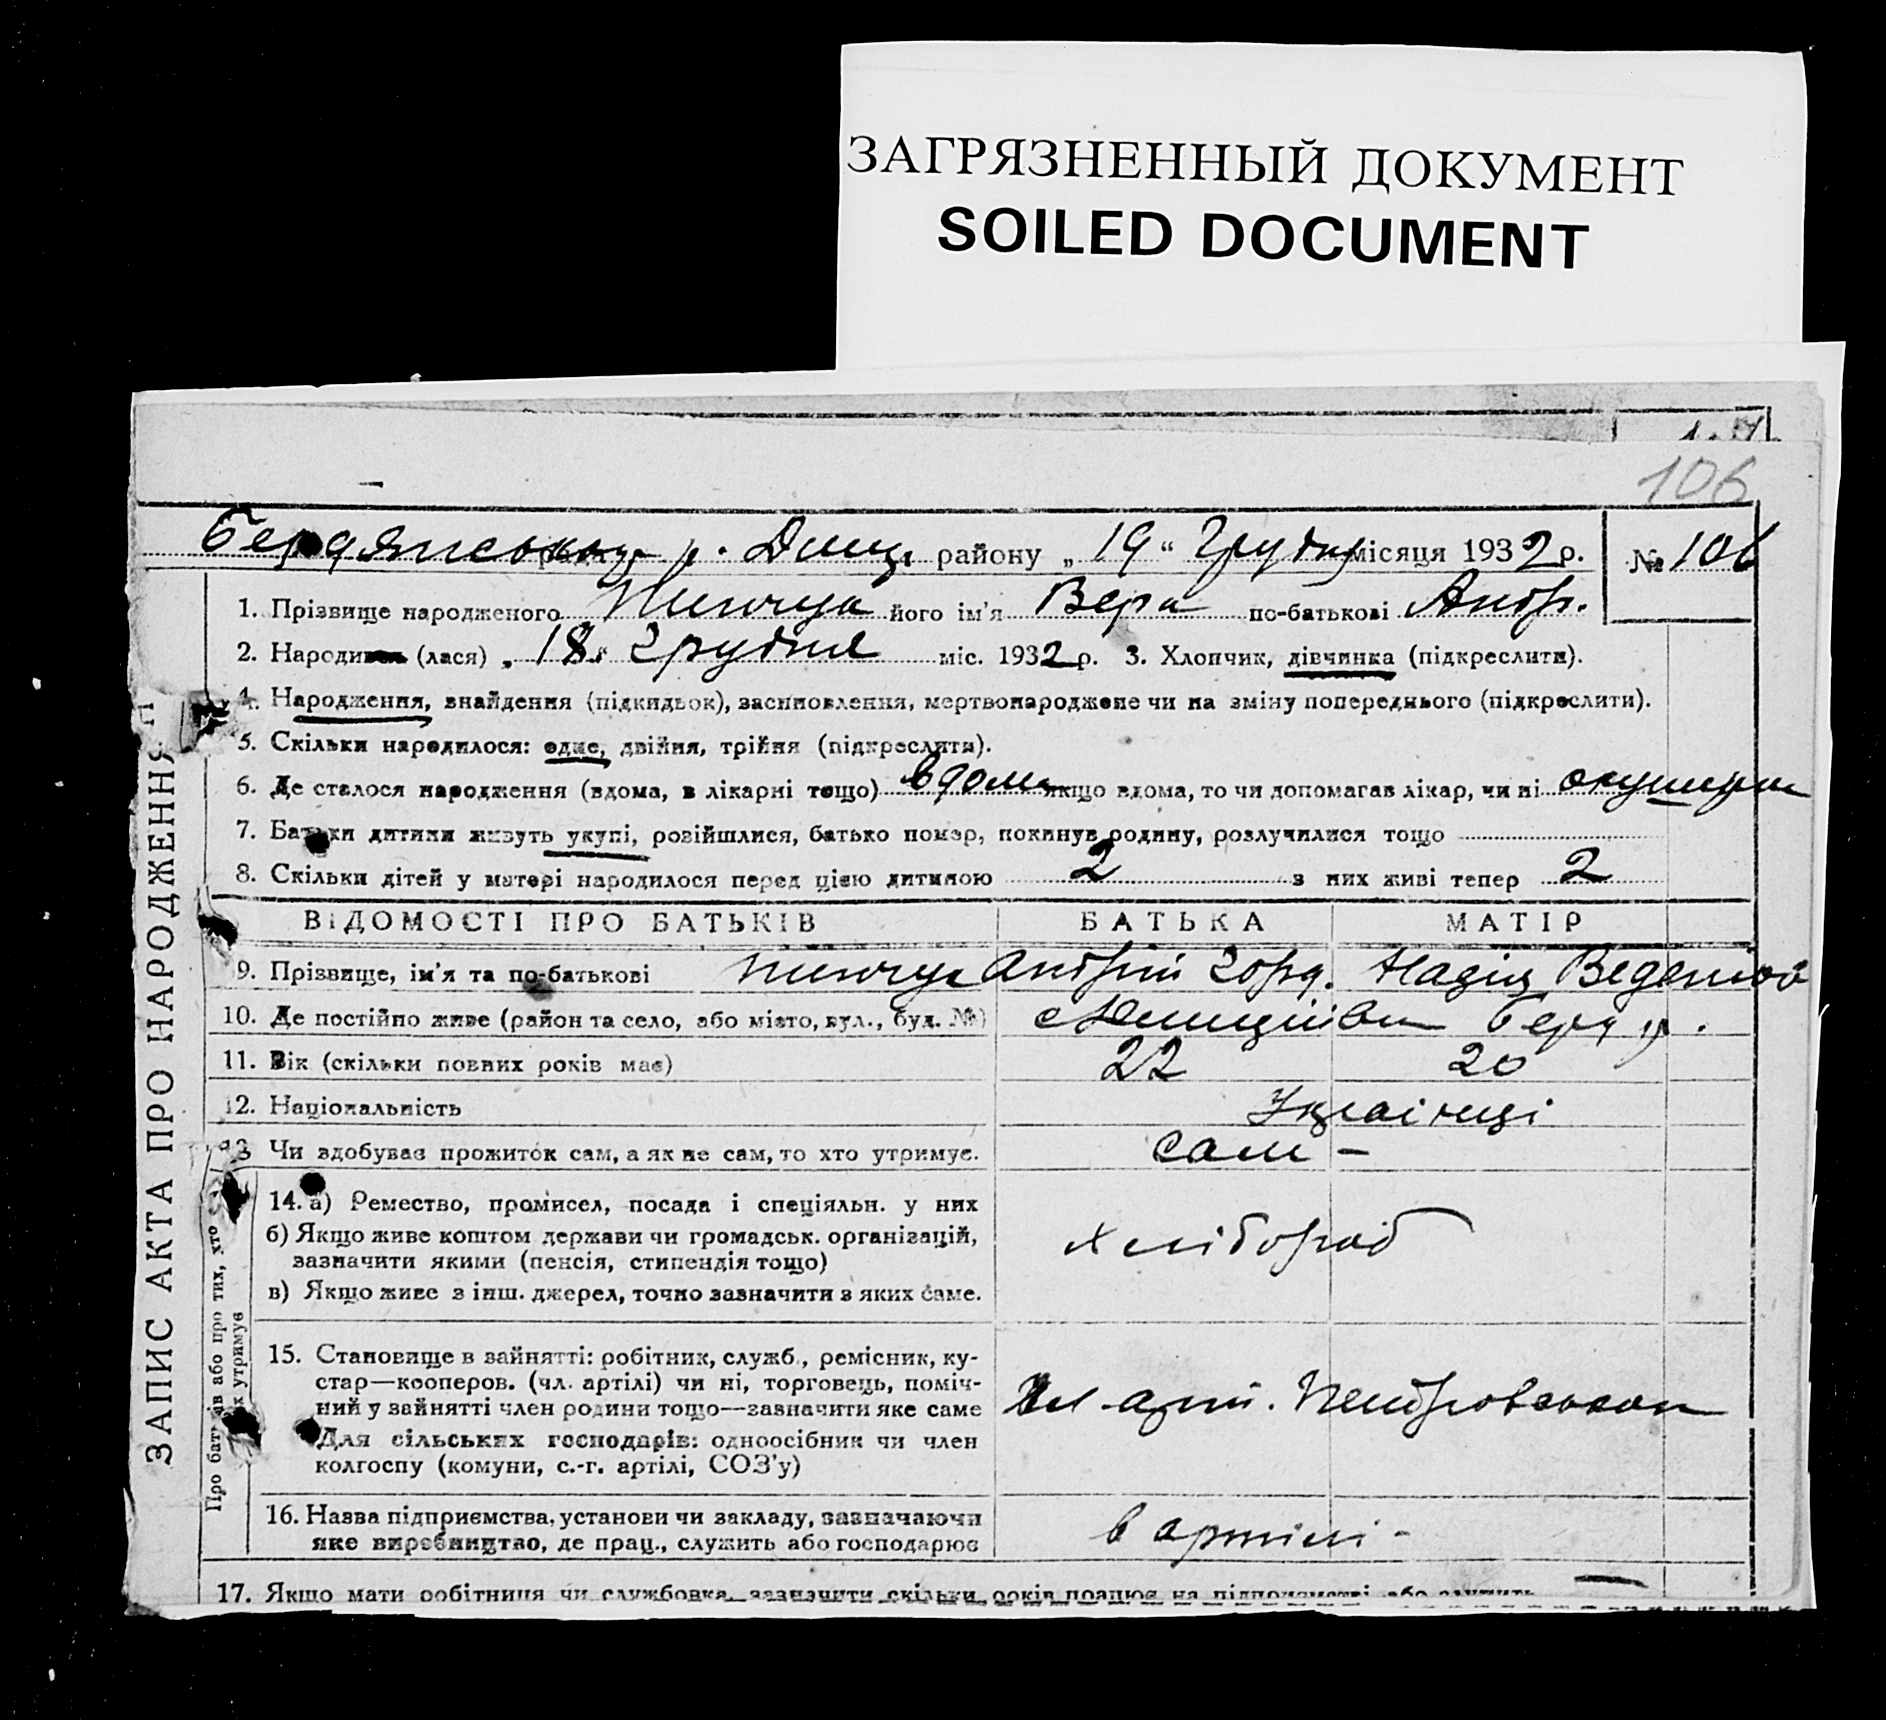 ЗАГРЯЗНЕННЫЙ ДОКУМЕНТ
SOILED DOCUMENT
106
Бердянського р. району „19“ Грудня місяця 1932 р. № 106
1. Прізвище народженого його ім'я Вера по-батькові Андр.
2. Народи (лася) „18“ Грудня міс. 1932 р. 3. Хлопчик, дівчинка (підкреслити).
4. Народження, знайдення (підкидьок), засиновлення, мертвонароджене чи на зміну попереднього (підкреслити).
5. Скільки народилося: одне, двійня, трійня (підкреслити).
6. Де сталося народження (вдома, в лікарні тощо) вдома якщо вдома, то чи допомагав лікар, чи ні
7. Батьки дитини живуть укупі, розійшлися, батько помер, покинув родину, розлучилися тощо
8. Скільки дітей у матері народилося перед цією дитиною 2 з них живі тепер 2
ВІДОМОСТІ ПРО БАТЬКІВ БАТЬКА МАТІР
9. Прізвище, ім'я та по-батькові Андрій Надія
10. Де постійно живе (район та село, або місто, вул., буд. №) Берд. р.
11. Вік (скільки повних років має) 22 20
12. Національність Українці
13. Чи здобуває прожиток сам, а як не сам, то хто утримує. сам –
14. а) Ремество, промисел, посада і спеціяльн. у них
б) Якщо живе коштом держави чи громадськ. організацій,
зазначити якими (пенсія, стипендія тощо)
в) Якщо живе з інш. джерел, точно зазначити з яких саме.
хлібороб
15. Становище в зайнятті: робітник, служб., ремісник, ку-
стар—кооперов. (чл. артілі) чи ні, торговець, поміч-
ний у зайнятті член родини тощо—зазначити яке саме
Для сільських господарів: одноосібник чи член
колгоспу (комуни, с.-г. артілі, СОЗ'у)
Чл. арт. Петровського
16. Назва підприємства, установи чи закладу, зазначаючи
яке виробництво, де прац., служить або господарює
в артілі -
17. Якщо мати робітниця чи службовка зазначити скільки років працює на підприємстві або служить
ЗАПИС АКТА ПРО НАРОДЖЕННЯ
Про батьків або про тих, хто
їх утримує